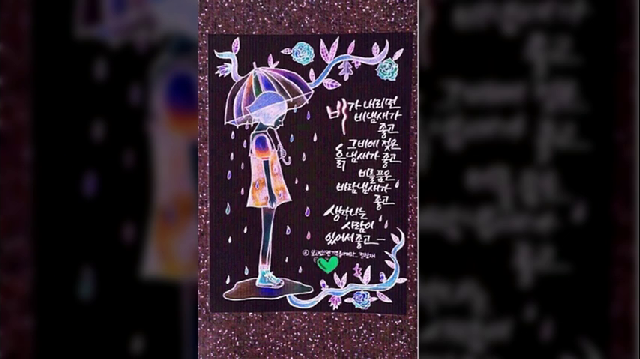 비가 내리면
비냄새가
좋고
그 비에 젖은
흙냄새가 좋고
비를 품은
바람냄새가
좋고
생각나는
사람이
있어서 좋고